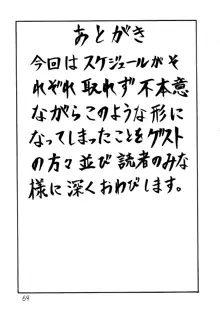 あとがき
今回はスケジュールがそ
れぞれ取れず不本意
ながらこのような形に
なってしまったことをゲスト
の方々並び読者のみな
様に深くおわびします。
69